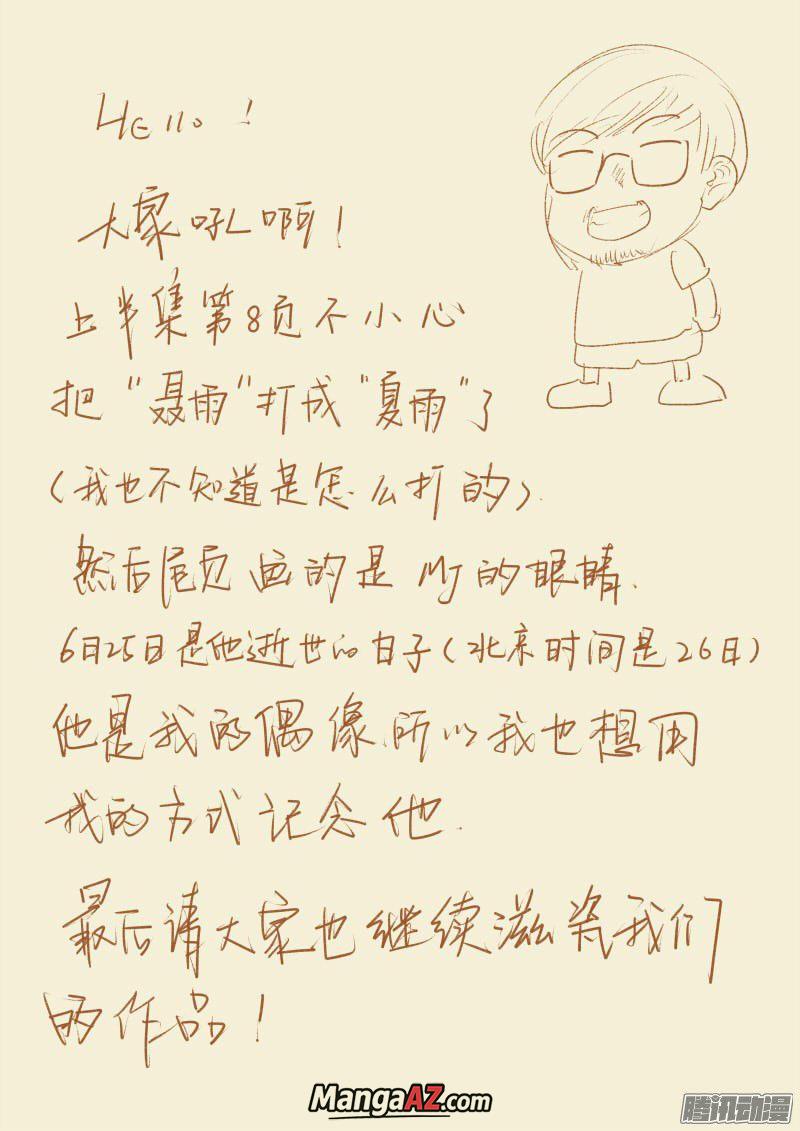 Hello!
大家吼啊!
上半集第8页不小心
把"聂雨"打成"夏雨"了
(我也不知道是怎么打的).
然后尾页画的是MJ的眼睛.
6日25日是他逝世的日子(北京时间是26日)
他是我的偶像.所以我也想用
我的方式记念他.
最后请大家也继续滋瓷我们
的作品!
MangaAZ.com
腾讯动漫